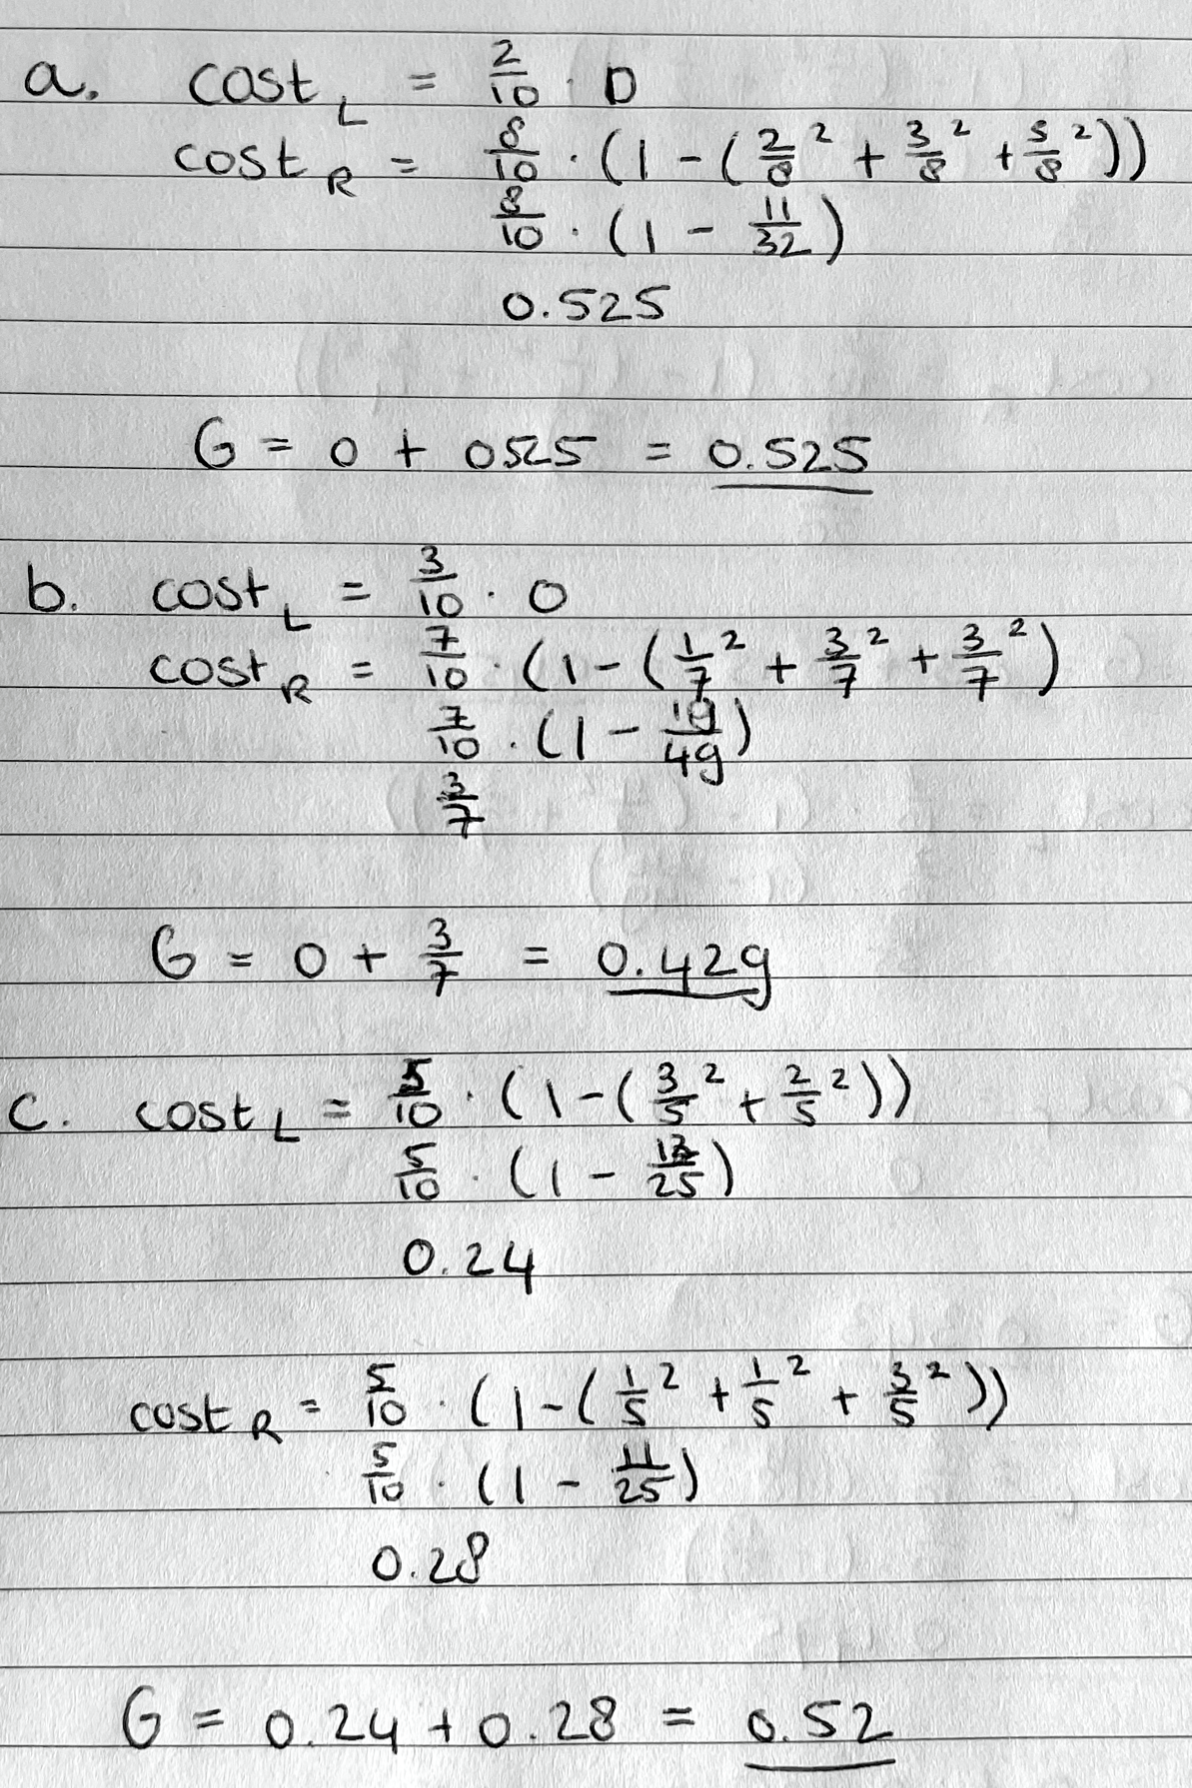 a. cost_L = 2/10 · 0
cost_R = 8/10 · (1 - (2/8² + 3/8² + 3/8²))
8/10 · (1 - 11/32)
0.525
G = 0 + 0525 = 0.525
b. cost_L = 3/10 · 0
cost_R = 7/10 · (1 - (1/7² + 3/7² + 3/7²)
7/10 · (1 - 19/49)
3/7
G = 0 + 3/7 = 0.429
c. cost_L = 5/10 · (1 - (3/5² + 2/5²))
5/10 · (1 - 13/25)
0.24
cost_R = 5/10 · (1 - (1/5² + 1/5² + 3/5²))
5/10 · (1 - 11/25)
0.28
G = 0.24 + 0.28 = 0.52